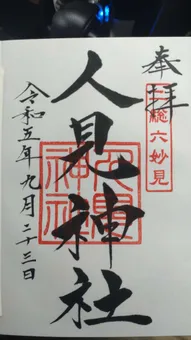 奉拝
上総六妙見
人見神社
人見神社
令和五年九月二十三日